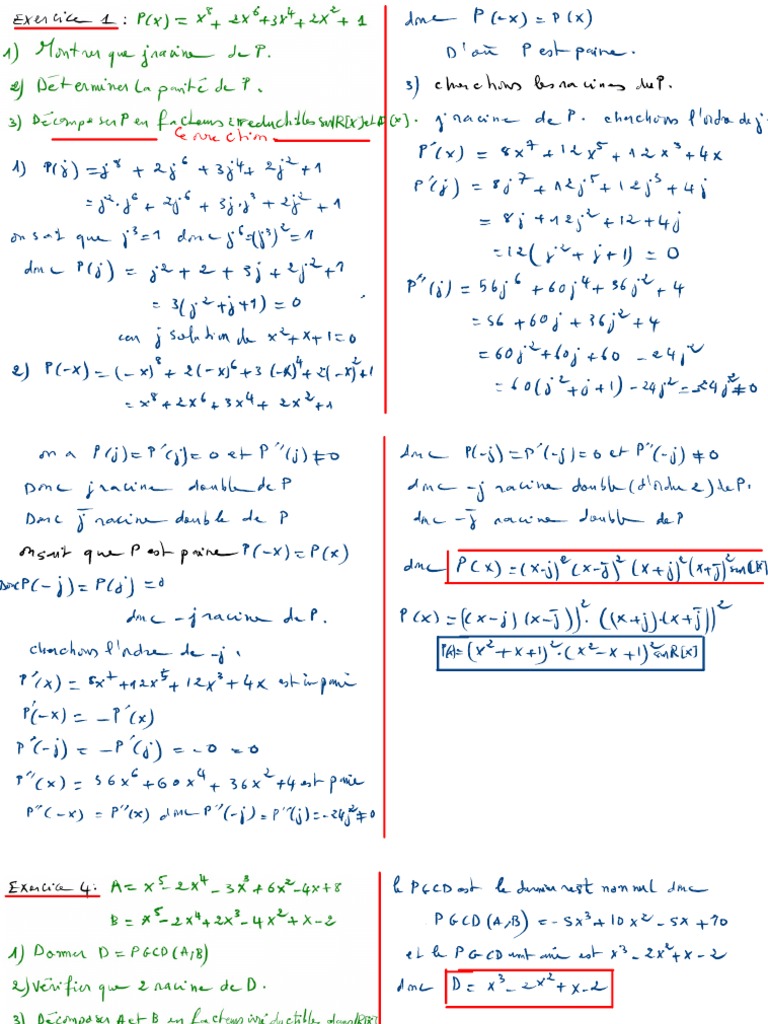 Exercice 1 : P(x) = x⁸ + 2x⁶ + 3x⁴ + 2x² + 1
1) Montrer que j racine de P.
2) Déterminer la parité de P.
3) Décomposer P en facteurs irréductibles sur R[x] et C[x].
Correction
1) P(j) = j⁸ + 2j⁶ + 3j⁴ + 2j² + 1
= j².j⁶ + 2j⁶ + 3j.j³ + 2j² + 1
on sait que j³=1 donc j⁶=(j³)²=1
donc P(j) = j² + 2 + 3j + 2j² + 1
= 3(j²+j+1) = 0
car j solution de x²+x+1=0
2) P(-x) = (-x)⁸ + 2(-x)⁶ + 3(-x)⁴ + 2(-x)² + 1
= x⁸ + 2x⁶ + 3x⁴ + 2x² + 1
donc P(-x) = P(x)
D'où P est paire.
3) cherchons les racines de P.
j racine de P. cherchons l'ordre de j.
P'(x) = 8x⁷ + 12x⁵ + 12x³ + 4x
P'(j) = 8j⁷ + 12j⁵ + 12j³ + 4j
= 8j + 12j² + 12 + 4j
= 12(j² + j + 1) = 0
P''(j) = 56j⁶ + 60j⁴ + 36j² + 4
= 56 + 60j + 36j² + 4
= 60j² + 60j + 60 - 24j²
= 60(j²+j+1) - 24j² = -24j² ≠ 0
on a P(j) = P'(j) = 0 et P''(j) ≠ 0
Donc j racine double de P
Donc j̄ racine double de P
on sait que P est paire P(-x) = P(x)
Donc P(-j) = P(j) = 0
donc -j racine de P.
cherchons l'ordre de -j.
P'(x) = 8x⁷ + 12x⁵ + 12x³ + 4x est impaire
P'(-x) = -P'(x)
P'(-j) = -P'(j) = -0 = 0
P''(x) = 56x⁶ + 60x⁴ + 36x² + 4 est paire
P''(-x) = P''(x) donc P''(-j) = P''(j) = -24j² ≠ 0
donc P(-j) = P'(-j) = 0 et P''(-j) ≠ 0
donc -j racine double (d'ordre 2) de P.
donc -j̄ racine double de P
donc P(x) = (x-j)²(x-j̄)²(x+j)²(x+j̄)² sur C[x]
P(x) = ((x-j)(x-j̄))².((x+j).(x+j̄))²
P(x) = (x²+x+1)².(x²-x+1)² sur R[x]
Exercice 4: A = x⁵ - 2x⁴ - 3x³ + 6x² - 4x + 8
B = x⁵ - 2x⁴ + 2x³ - 4x² + x - 2
1) Donner D = PGCD(A,B)
2) Vérifier que 2 racine de D.
3) Décomposer A et B en facteurs irréductibles dans R[x]
le PGCD est le dernier rest non nul donc
PGCD(A,B) = -5x³ + 10x² - 5x + 10
et le PGCD unitaire est x³ - 2x² + x - 2
donc D = x³ - 2x² + x - 2